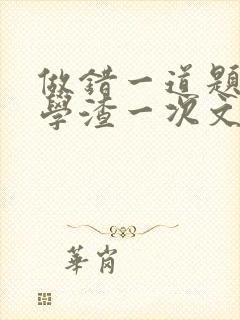 做錯一道題
學渣一次文
華肖